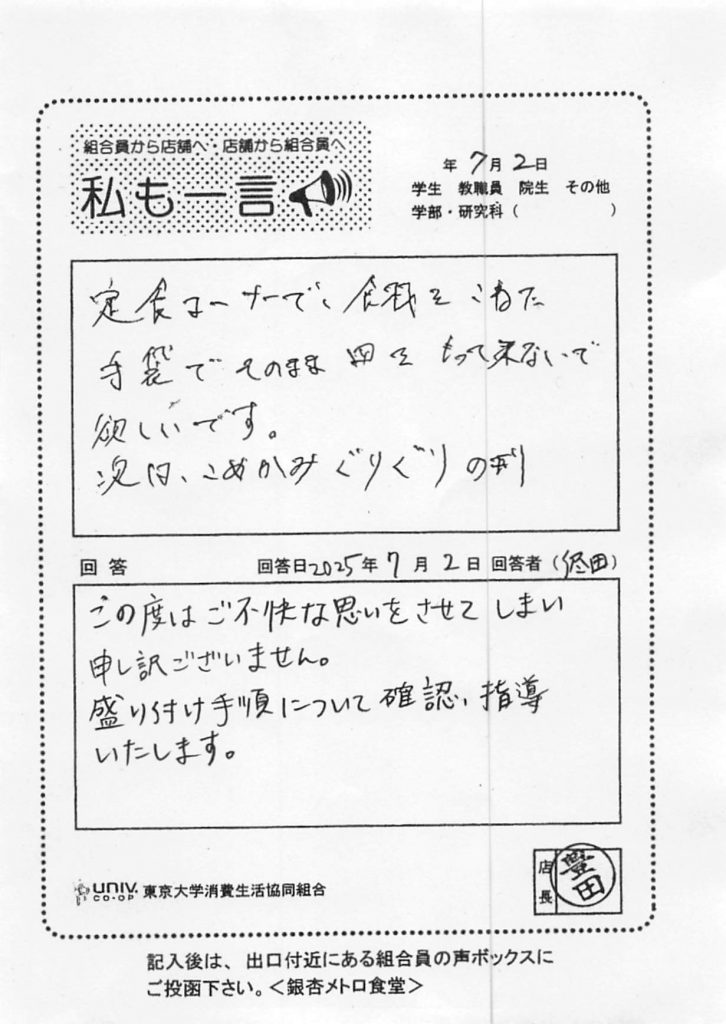 組合員から店舗へ・店舗から組合員へ
私も一言
年 7月 2日
学生 教職員 院生 その他
学部・研究科 ( )
定食コーナーで、食材をこねた
手袋でそのまま皿をもって来ないで
欲しいです。
次は、こめかみぐりぐりの刑
回答 回答日2025年 7月 2日 回答者 ( 田)
この度はご不快な思いをさせてしまい
申し訳ございません。
盛り付け手順について確認、指導
いたします。
店長 豊田
UNIV. CO-OP 東京大学消費生活協同組合
記入後は、出口付近にある組合員の声ボックスに
ご投函下さい。<銀杏メトロ食堂>